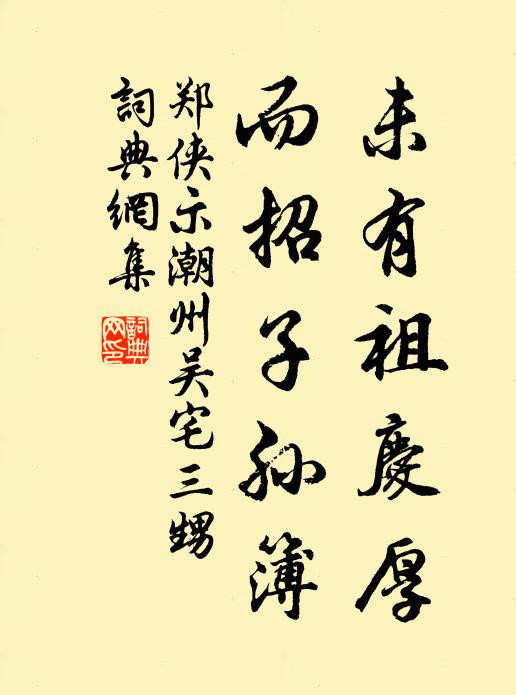 未有祖慶厚
而招子孙簿
郑侠示潮州吴宅三甥
詞典網集
詞典
网印